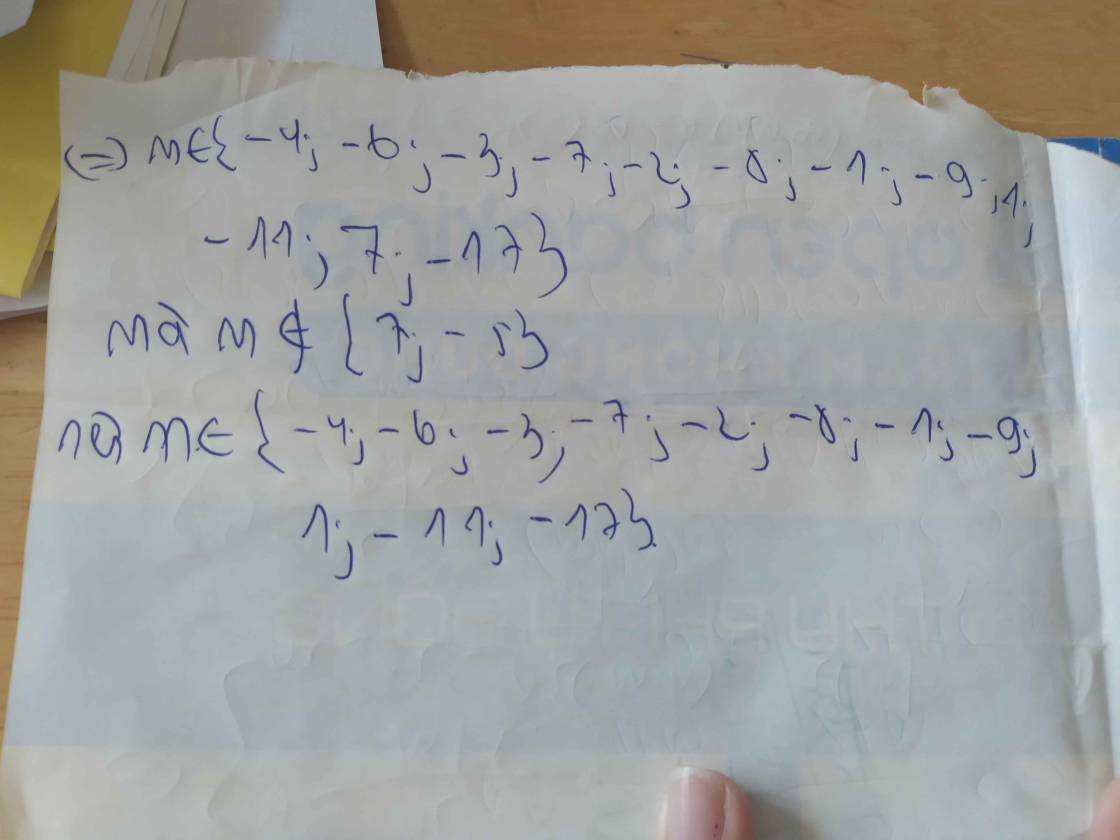 (=) n∈{-4; -6; -3; -7; -2; -8; -1; -9; 1;
-11; 7; -17}
mà n ∉ {7; -5}
nê n∈ {-4; -6; -3; -7; -2; -8; -1; -9;
1; -11; -17}.